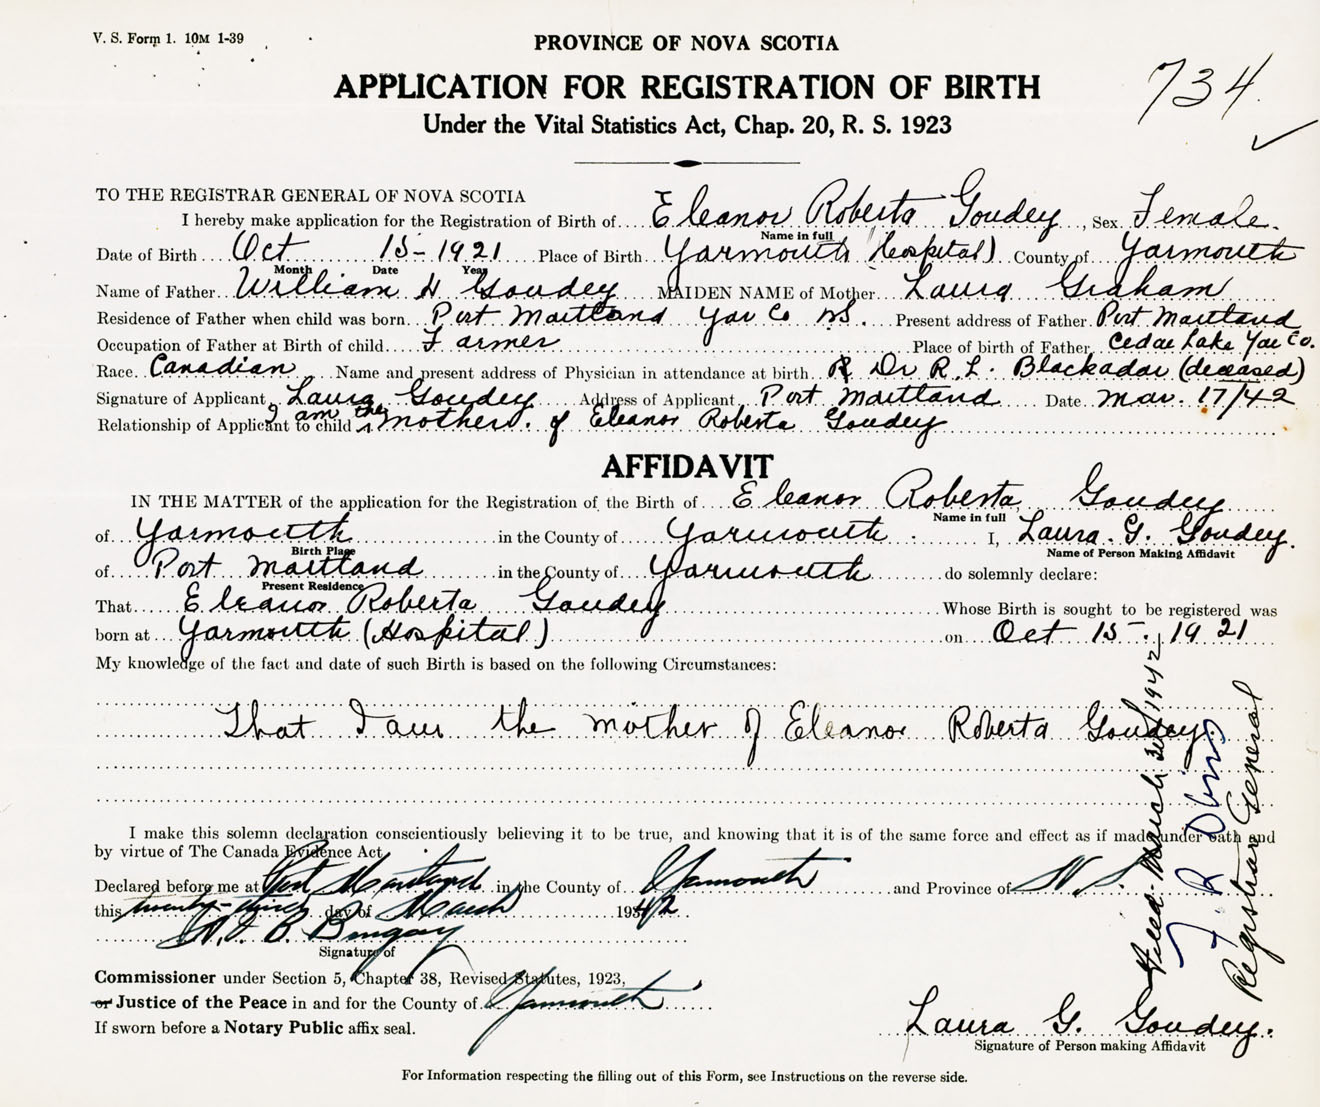 V. S. Form 1. 10M 1-39
PROVINCE OF NOVA SCOTIA
734
APPLICATION FOR REGISTRATION OF BIRTH
Under the Vital Statistics Act, Chap. 20, R. S. 1923
TO THE REGISTRAR GENERAL OF NOVA SCOTIA
I hereby make application for the Registration of Birth of Eleanor Roberta Goudey, Sex Female.
Name in full
Date of Birth Oct 15 - 1921 Place of Birth Yarmouth (hospital) County of Yarmouth
Month Date Year
Name of Father William H Goudey MAIDEN NAME of Mother Laura Graham
Residence of Father when child was born Port Maitland Yar Co NS. Present address of Father Port Maitland
Occupation of Father at Birth of child Farmer Place of birth of Father Cedar Lake Yar Co.
Race Canadian Name and present address of Physician in attendance at birth Dr R. L. Blackadar (deceased)
Signature of Applicant Laura Goudey Address of Applicant Port Maitland Date Mar. 17/42
Relationship of Applicant to child I am the mother. of Eleanor Roberta Goudey
AFFIDAVIT
IN THE MATTER of the application for the Registration of the Birth of Eleanor Roberta Goudey
Name in full
of Yarmouth in the County of Yarmouth I, Laura. G. Goudey.
Birth Place Name of Person Making Affidavit
of Port Maitland in the County of Yarmouth do solemnly declare:
Present Residence
That Eleanor Roberta Goudey Whose Birth is sought to be registered was
born at Yarmouth (Hospital) on Oct 15 -, 1921
My knowledge of the fact and date of such Birth is based on the following Circumstances:
That I am the mother of Eleanor Roberta Goudey.
I make this solemn declaration conscientiously believing it to be true, and knowing that it is of the same force and effect as if made under oath and
by virtue of The Canada Evidence Act
Declared before me at Port Maitland in the County of Yarmouth and Province of N. S.
this twenty-third day of March 1942
B. Bingay
Signature of
Commissioner under Section 5, Chapter 38, Revised Statutes, 1923,
or Justice of the Peace in and for the County of Yarmouth
If sworn before a Notary Public affix seal.
Laura G. Goudey.
Signature of Person making Affidavit
For Information respecting the filling out of this Form, see Instructions on the reverse side.
Filed March 1942
Registrar General